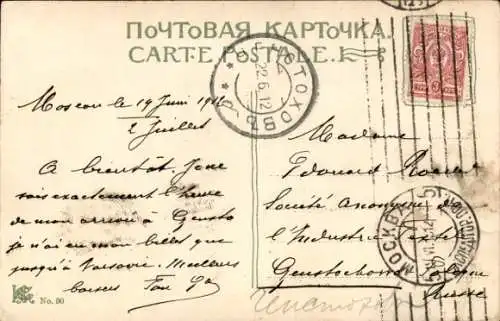 ПОЧТОВАЯ КАРТОЧКА.
CARTE POSTALE.
ЧЕНСТОХОВЪ
22.6.12
Moscou le 19 Juin 1912
2 Juillet
A bientôt. Je ne
sais exactement l'heure
de mon arrivée à
je n'ai eu mon billet que
jusqu'à Varsovie. Meilleurs
baisers
Madame
Edouard
Société Anonyme de
l'Industrie Textile
Czenstochowa Pologne
Russe
МОСКВА
Ченстохов
No. 90